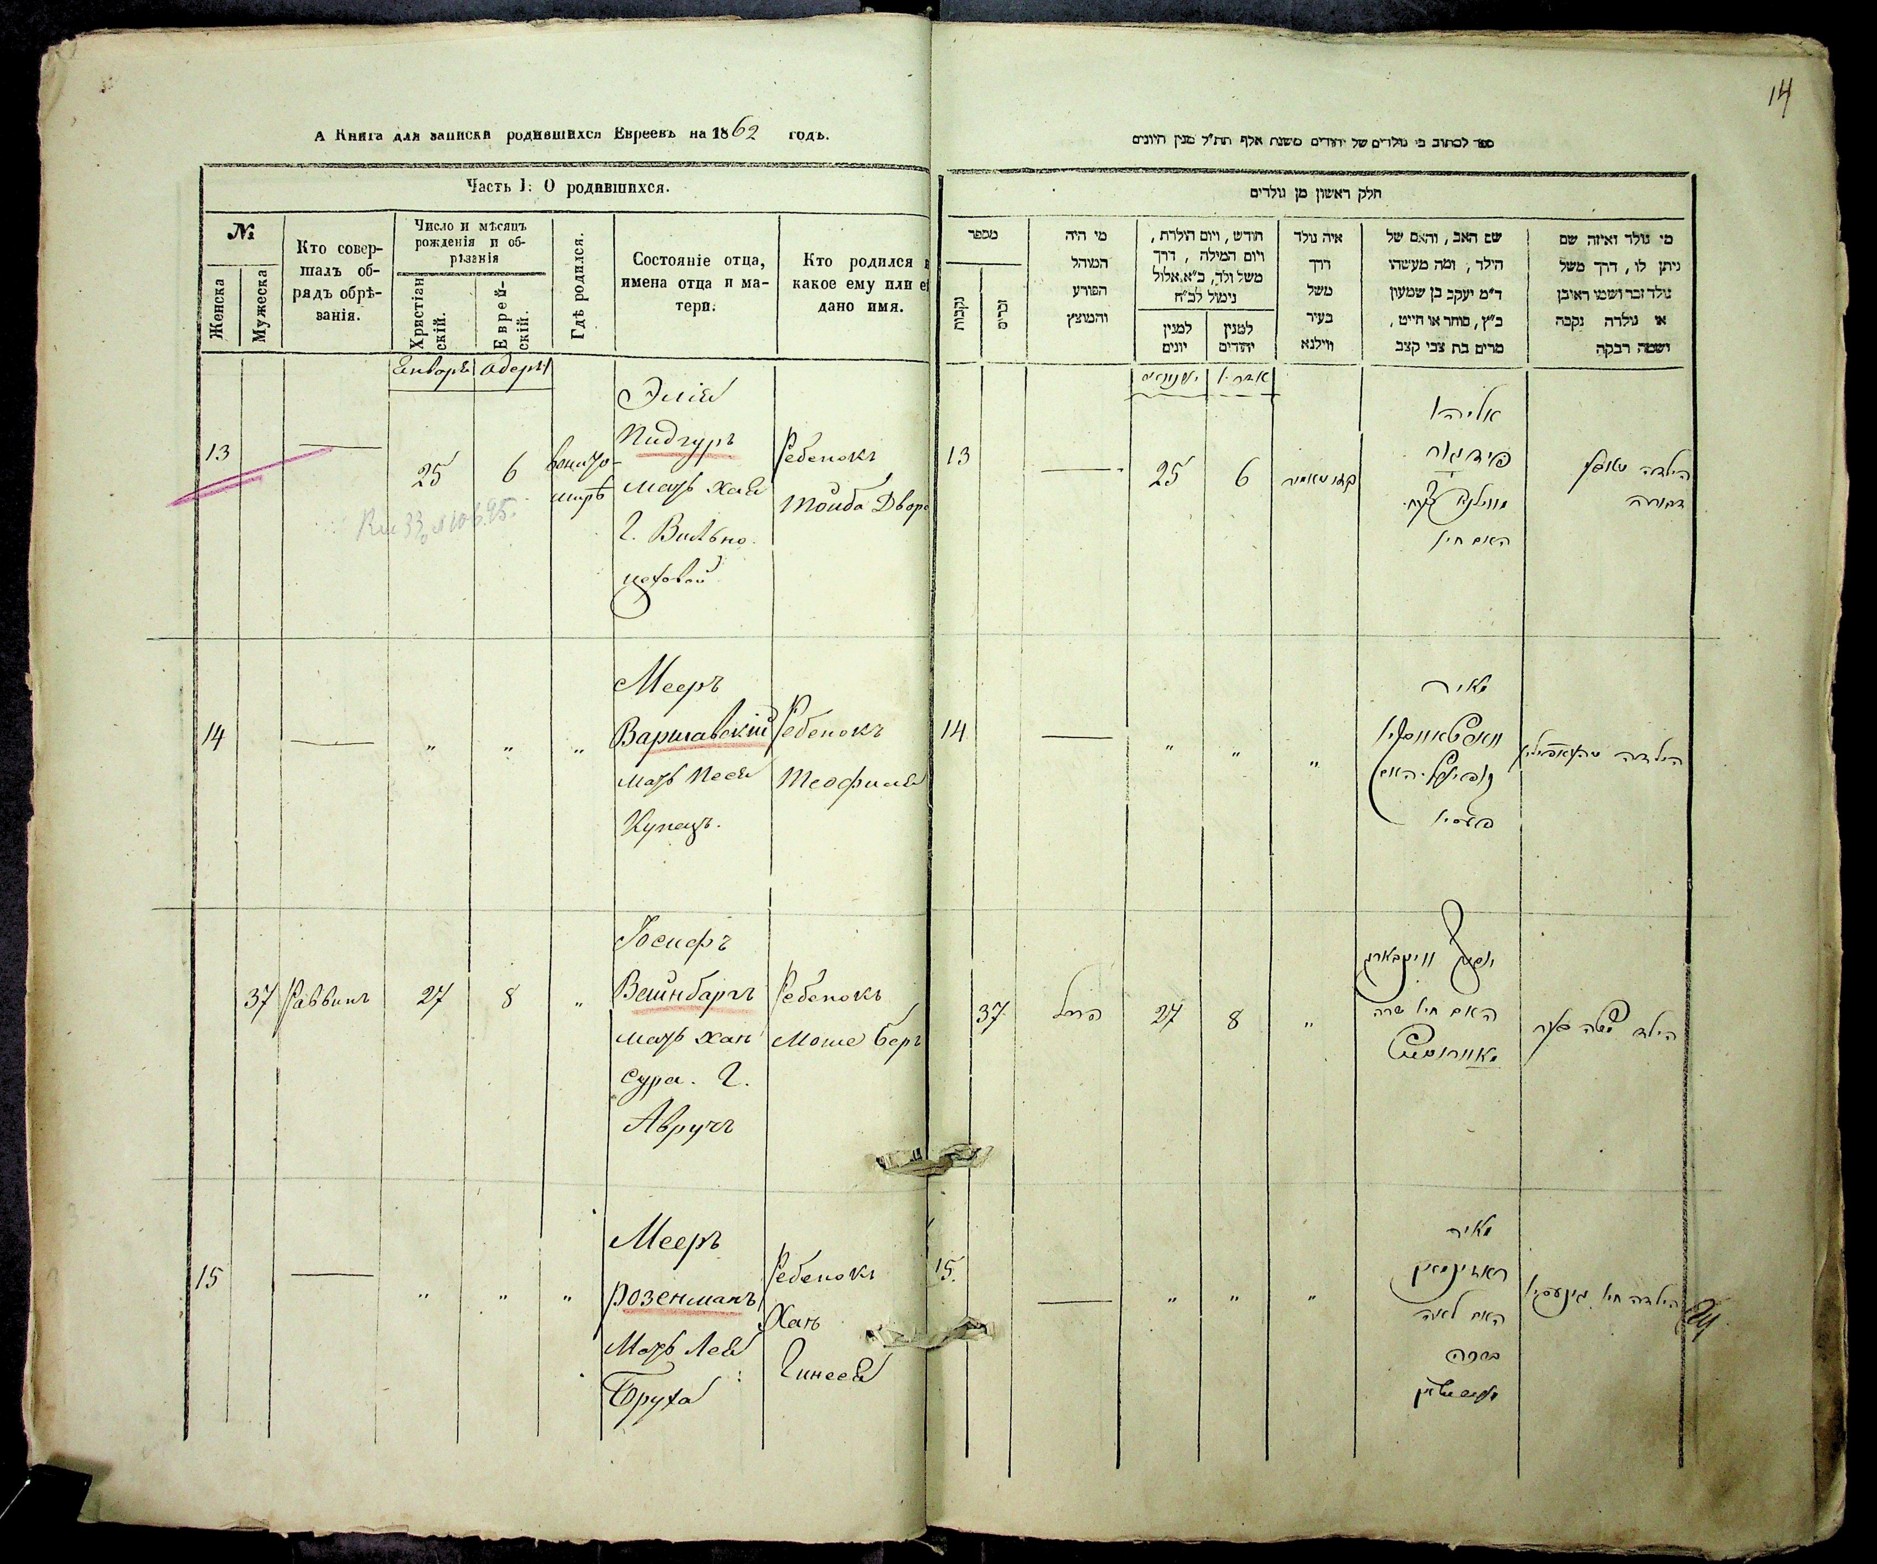 14
А Книга для записки родившихся Евреевъ на 1862 годъ.
Часть I: О родившихся.
№
Женска
Мужеска
Кто совер-
шалъ об-
рядъ обрѣ-
занія.
Число и мѣсяцъ
рожденія и об-
рѣзанія
Христіан
скій.
Еврей-
скій.
Гдѣ родился.
Состояніе отца,
имена отца и ма-
тери.
Кто родился и
какое ему или ей
дано имя.
Январь
Адеръ
13
25
6
вжито-
мирѣ
Элія
Пидгуръ
мать Хая
Г. Вильно
цеховой
Ребенокъ
Тойба Двора
14
"
"
"
Мееръ
Варшавскій
мать Песя
Купецъ.
Ребенокъ
Теофилія
37
Раввинъ
27
8
"
Іосифъ
Вейнбаргъ
мать Хая
Сура. Г.
Авручъ
Ребенокъ
Моше Беръ
15
"
"
"
Мееръ
Розенманъ
Мать Лея
Бруха
Ребенокъ
Хая
Гинеся
ספר לכתוב בו נולדים של יהודים משנת אלף תת"ל מנין היונים
חלק ראשון מן נולדים
מספר
נקבות
זכרים
מי היה
המוהל
הפורע
והמוצץ
חודש, ויום הולדת,
ויום המילה, דרך
משל ולד, כ"א, אלול
נימול לכ"ח
למנין
יונים
למנין
יהודים
איה נולד
דרך
משל
בעיר
ווילנא
שם האב, והאם של
הילד, ומה מעשהו
ד"מ יעקב בן שמעון
כ"ץ, סוחר או חייט,
מרים בת צבי קצב
מי נולד ואיזה שם
ניתן לו, דרך משל
נולד זכר ושמו ראובן
או נולדה נקבה
ושמה רבקה
ינוואר
אדר
13
25
6
אליהו
האם חי'
הילדה טויבא
דבורה
14
"
"
"
מאיר
ווארשאווסקי
האם
פעסי
הילדה
37
27
8
"
יוסף וויינבארג
האם חי' שרה
הילד משה בער
15.
"
"
"
מאיר
ראזינמאן
האם לאה
ברכה
הילדה חי' גינעסי'